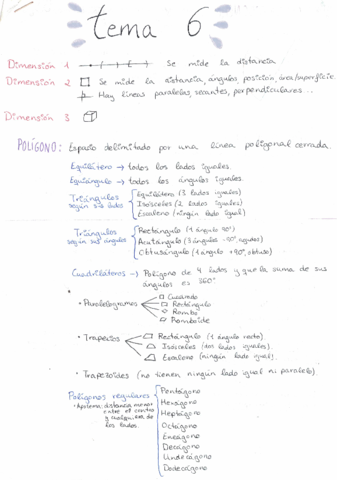 tema 6
Dimensión 1 Se mide la distancia
Dimensión 2 Se mide la distancia, ángulos, posición, área/superficie.
Hay líneas paralelas, secantes, perpendiculares...
Dimensión 3
POLÍGONO: Espacio delimitado por una línea poligonal cerrada.
Equilátero → todos los lados iguales.
Equiángulo → todos los ángulos iguales.
Triángulos según sus lados
Equilátero (3 lados iguales)
Isósceles (2 lados iguales)
Escaleno (ningún lado igual)
Triángulos según sus ángulos
Rectángulo (1 ángulo 90°)
Acutángulo (3 ángulos -90°, agudos)
Obtusángulo (1 ángulo +90°, obtuso)
Cuadriláteros → Polígono de 4 lados y que la suma de sus
ángulos es 360°
• Paralelogramos
Cuadrado
Rectángulo
Rombo
Romboide
• Trapecios
Rectángulo (1 ángulo recto)
Isósceles (dos lados iguales)
Escaleno (ningún lado igual)
• Trapezoides (no tienen ningún lado igual ni paralelo)
Polígonos regulares
• Apotema: distancia menor
entre el centro
y cualquiera de
los lados.
Pentágono
Hexágono
Heptágono
Octágono
Eneágono
Decágono
Undecágono
Dodecágono